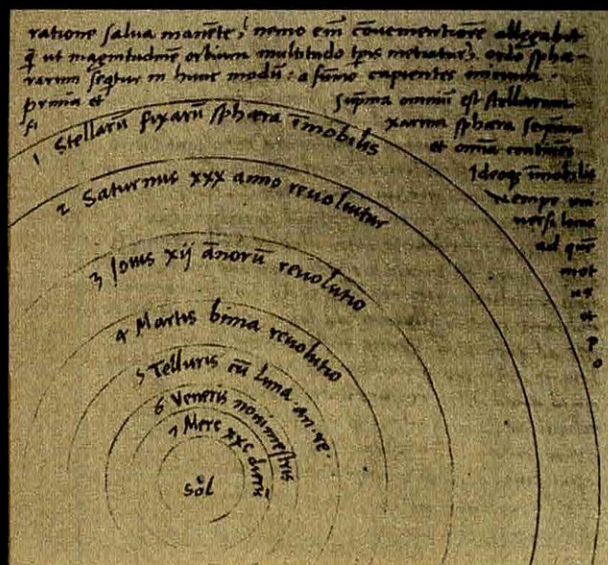 ratione salua manēte, nemo em̄ cōuenientiorē allegabit
q̄ ut magnitudinē orbium multitudo tp̄is metiatur, ordo sphæ-
rarum seqtur in hunc modū: a sūmo capientes initium.
prima et suprema omniū est stellarum
fi xarum sphæra seipsam
et omnia continēs
Ideoq̄ īmobilis
nempe uni-
uersi locus
ad quē
mot
us
et
p
o
1 Stellarū fixarū sphæra īmobilis
2 Saturnus xxx anno reuoluitur
3 Iouis xij ānorū reuolutio
4 Martis bima reuolutio
5 Telluris cū luna an. re.
6 Veneris nonimestris
7 Merc xxc dierū
Sol